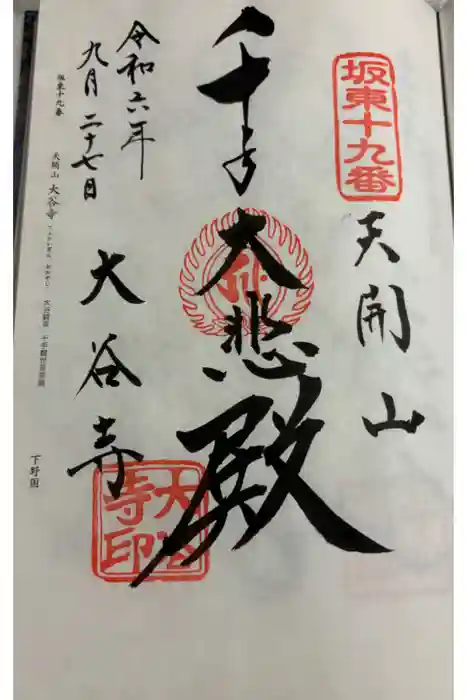 坂東十九番
天開山
千手
大悲殿
大谷寺
大谷寺印
令和六年
九月二十七日
坂東十九番
天開山 大谷寺
てんかいざん おおやじ
大谷観音 千手観世音菩薩
下野国